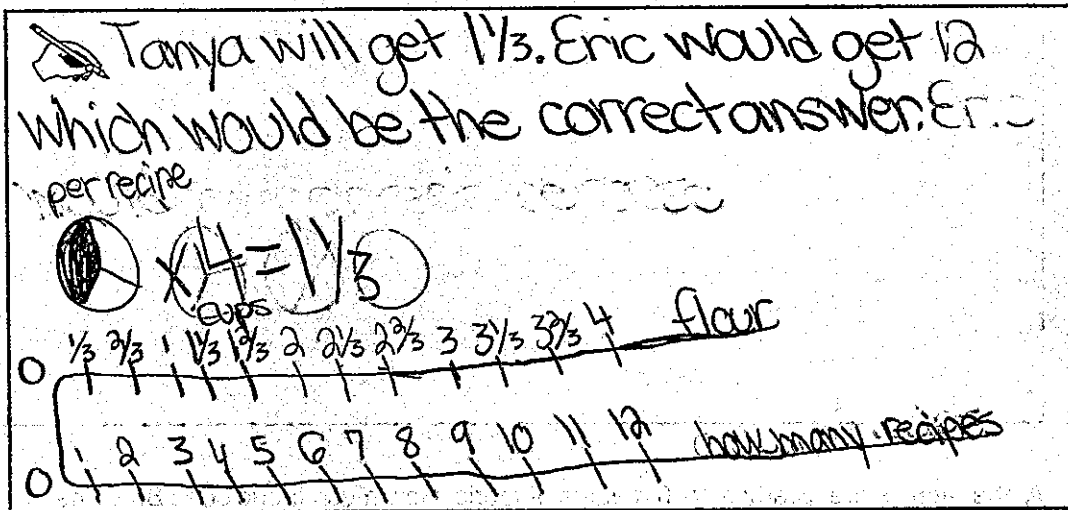 Tanya will get 1 1/3. Eric would get 12
which would be the correct answer.
per recipe
x 4 = 1 1/3
cups
0 1/3 2/3 1 1 1/3 1 2/3 2 2 1/3 2 2/3 3 3 1/3 3 2/3 4 flour
0 1 2 3 4 5 6 7 8 9 10 11 12 how many recipes